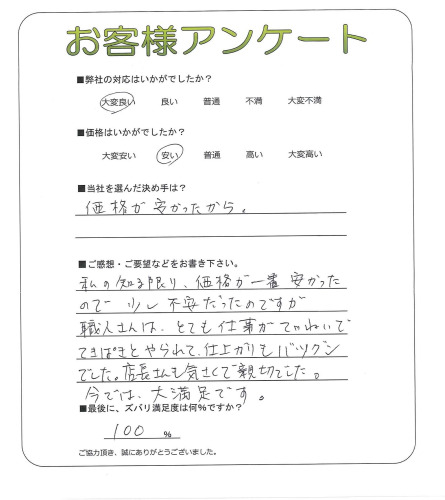 お客様アンケート
■弊社の対応はいかがでしたか？
大変良い 良い 普通 不満 大変不満
■価格はいかがでしたか？
大変安い 安い 普通 高い 大変高い
■当社を選んだ決め手は？
価格が安かったから。
■ご感想・ご要望などをお書き下さい。
私の知る限り、価格が一番安かった
ので少し不安だったのですが
職人さんは、とても仕事がていねいで
てきぱきとやられて、仕上がりもバツグン
でした。店長さんも気さくで親切でした。
今では、大満足です。
■最後に、ズバリ満足度は何％ですか？
100 ％
ご協力頂き、誠にありがとうございました。